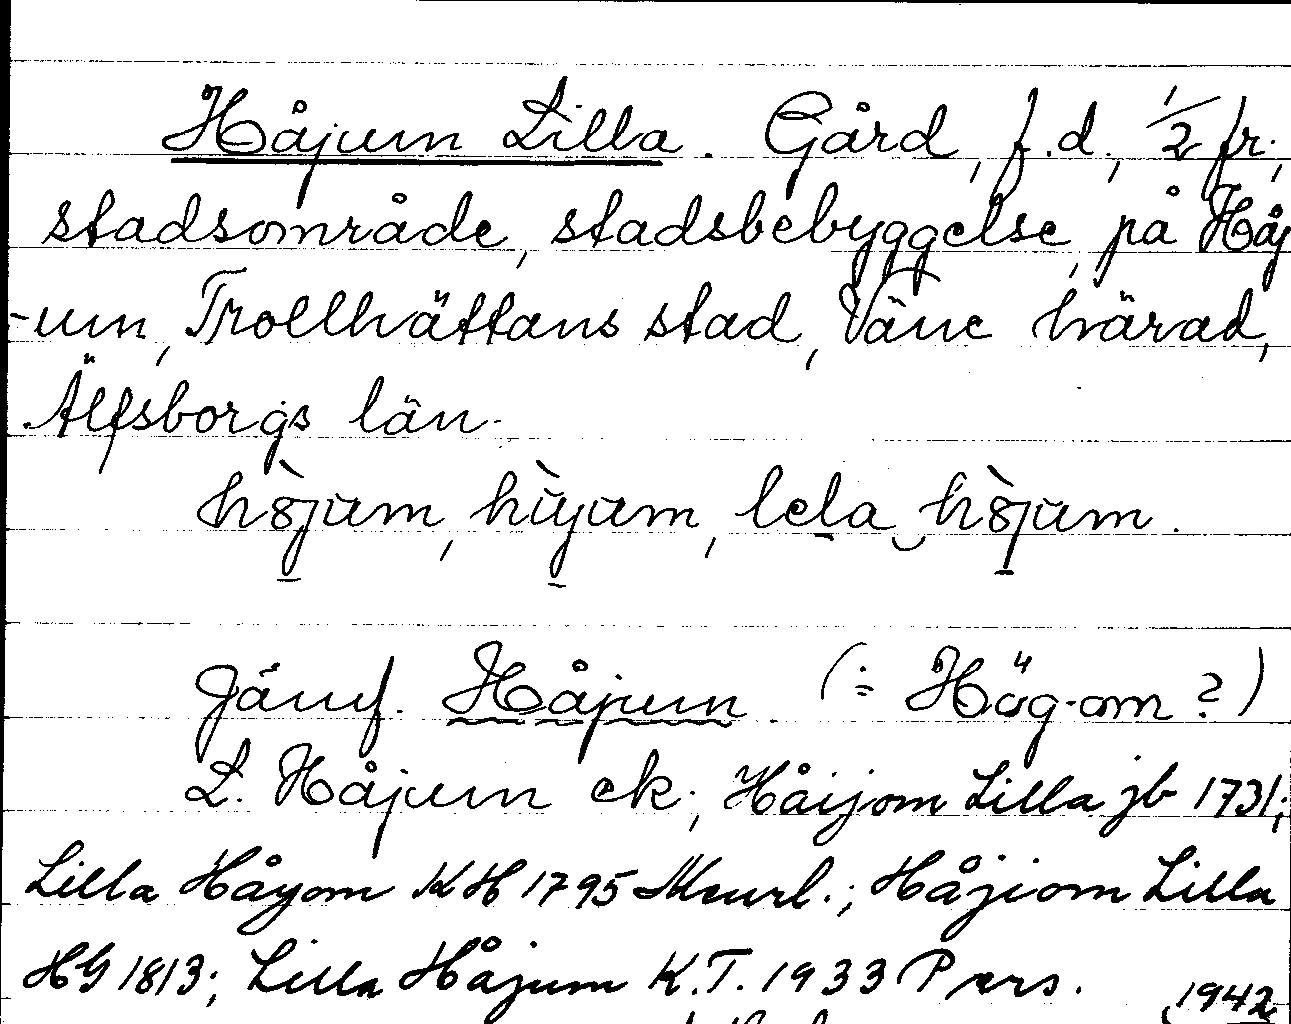 Håjum Lilla. Gård, f.d., 1/2 fr.,
stadsområde, stadsbebyggelse, på Håj
-um, Trollhättans stad, Väne härad,
Älfsborgs län.
lela
Jämf. Håjum. (÷ Hög-om?)
L. Håjum ek.; Håijom Lilla jb 1731;
Lilla Håyom KH 1795 Meurl.; Håjiom Lilla
HG 1813; Lilla Håjum K.T. 1933 Pers.
1942